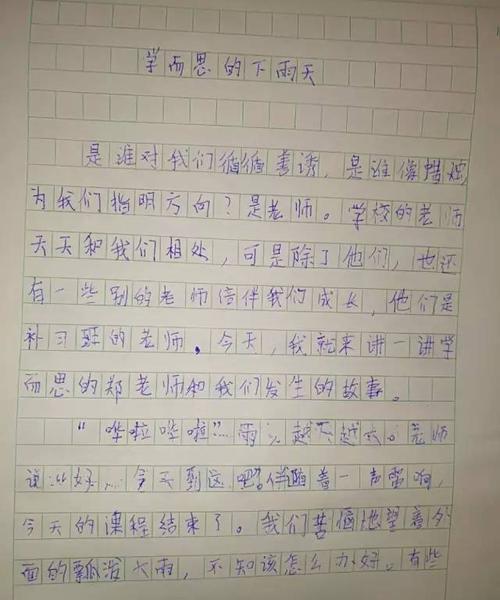 学而思的下雨天
是谁对我们循循善诱，是谁像蜡烛
为我们指明方向？是老师。学校的老师
天天和我们相处，可是除了他们，也还
有一些别的老师陪伴我们成长，他们是
补习班的老师。今天，我就来讲一讲学
而思的郑老师和我们发生的故事。
“哗啦哗啦”…雨越下越大。老师
说：“好…今天到这吧。伴随着一声雷响，
今天的课程结束了。我们苦恼地望着外
面的瓢泼大雨，不知该怎么办好。有些